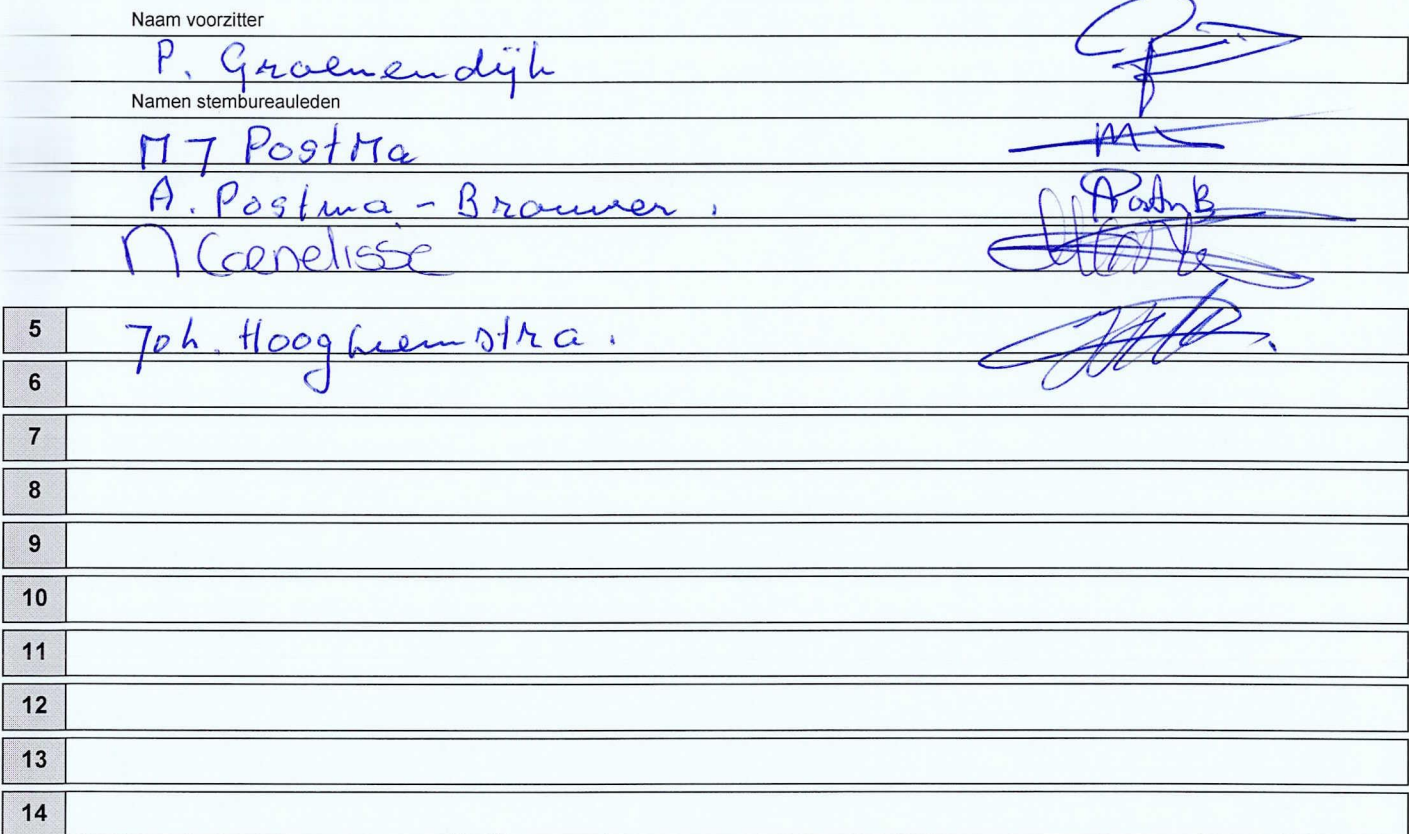 Naam voorzitter
P. Groenendijk
Namen stembureauleden
M J Postma
A. Postma - Brouwer.
M Cornelisse
5 Joh. Hooghiemstra.
6
7
8
9
10
11
12
13
14